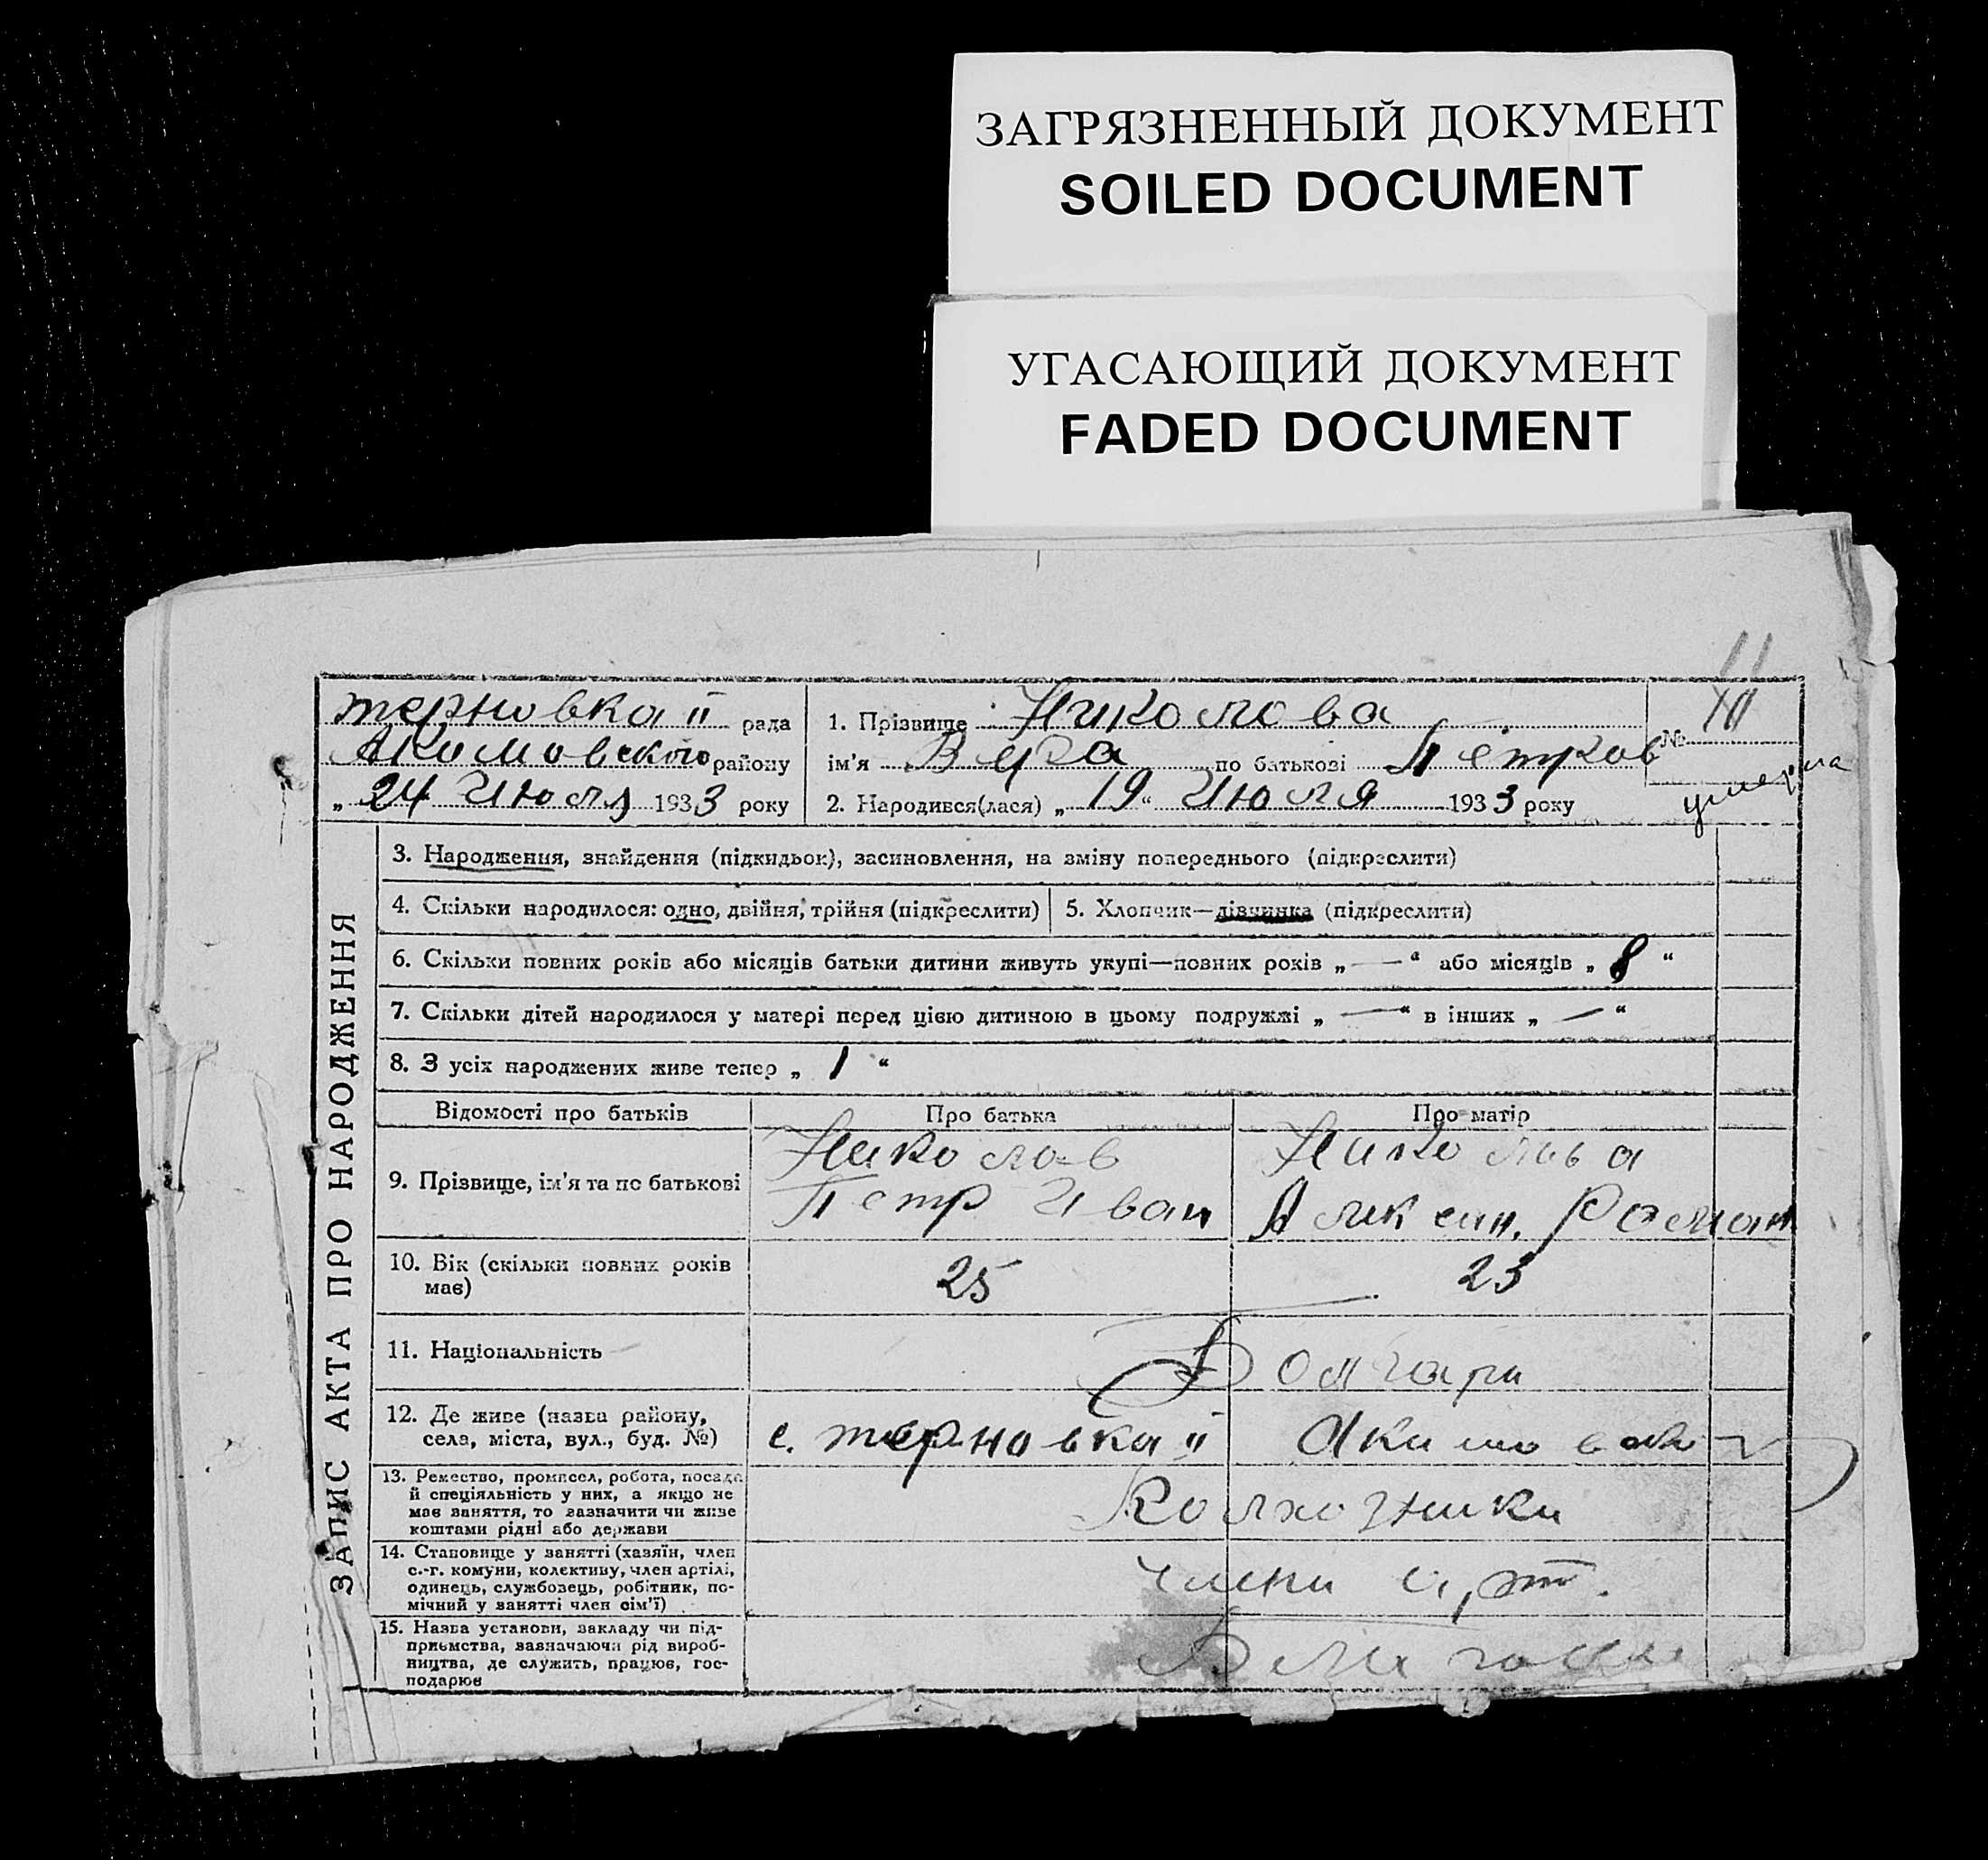 ЗАГРЯЗНЕННЫЙ ДОКУМЕНТ
SOILED DOCUMENT
УГАСАЮЩИЙ ДОКУМЕНТ
FADED DOCUMENT
11
терновка II рада
Акимовского району
„ 24 Июля 1933 року
1. Прізвище Николова
ім'я Вера по батькові Петров
2. Народився(лася) „ 19 “ Июля 1933 року
№
умерла
ЗАПИС АКТА ПРО НАРОДЖЕННЯ
3. Народження, знайдення (підкидьок), засиновлення, на зміну попереднього (підкреслити)
4. Скільки народилося: одно, двійня, трійня (підкреслити)
5. Хлопчик—дівчинка (підкреслити)
6. Скільки повних років або місяців батьки дитини живуть укупі—повних років „ — “ або місяців „ 8 “
7. Скільки дітей народилося у матері перед цією дитиною в цьому подружжі „ — “ в інших „ — “
8. З усіх народжених живе тепер „ 1 “
Відомості про батьків
Про батька
Про матір
9. Прізвище, ім'я та по батькові
Николов
Петр Иван
Роман
10. Вік (скільки повних років
має)
25
23
11. Національність
Болгари
12. Де живе (назва району,
села, міста, вул., буд. №)
с. терновка II
13. Ремество, промисел, робота, посада
й спеціяльність у них, а якщо не
має заняття, то зазначити чи живе
коштами рідні або держави
Колхозники
14. Становище у занятті (хазяїн, член
с.-г. комуни, колективу, член артілі,
одинець, службовець, робітник, по-
мічний у занятті член сім'ї)
члени арт.
15. Назва установи, закладу чи під-
приємства, зазначаючи рід вироб-
ництва, де служить, працює, гос-
подарює